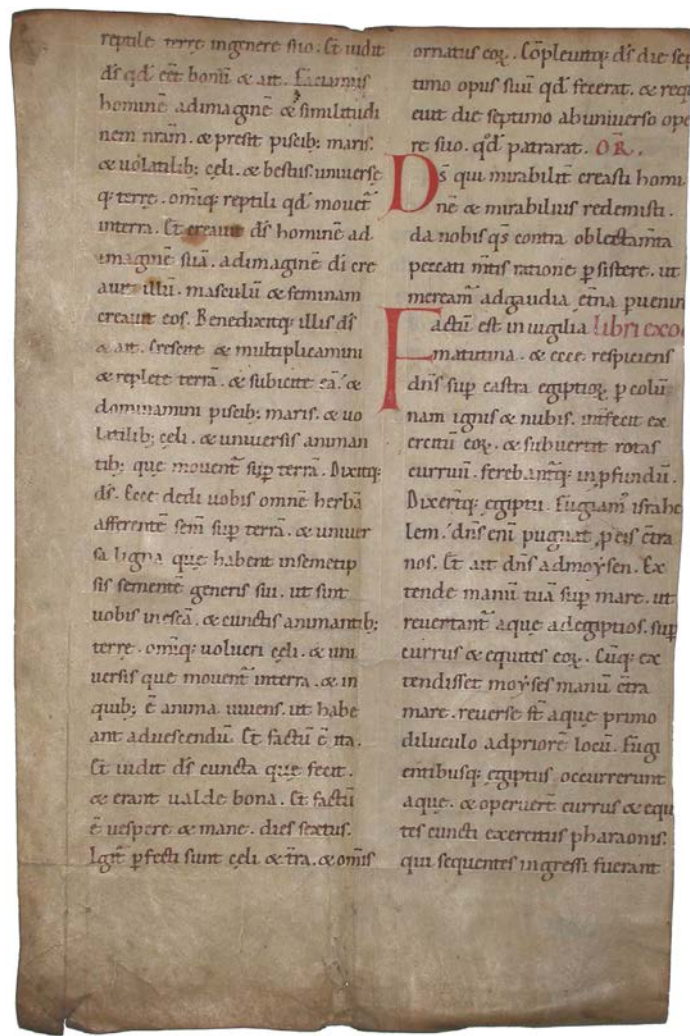 reptile terrę ingenere suo. Et uidit
d̄s qd̄ eēt bonū & ait. Faciamus
hominē adimaginē & similitudi
nem nr̄am. & presit piscib; maris.
& uolatilib; cęli. & bestiis uniuerse
q; terrę. om̄iq; reptili qd̄ mouet̄
interra. Et creauit d̄s hominē ad
imaginē suā. adimaginē dī cre
auit illū. masculū & feminam
creauit eos. Benedixitq; illis d̄s
& ait. Crescite & multiplicamini
& replete terrā. & subicite eā. &
dominamini piscib; maris. & uo
latilib; cęli. & uniuersis animan
tib; que mouent̄ sup̄ terrā. Dixitq;
d̄s. Ecce dedi uobis omnē herbā
afferentē sem̄ sup̄ terrā. & uniuer
sa ligna que habent insemetip
sis sementē generis sui. ut sint
uobis inescā. & cunctis animantib;
terrę. om̄iq; uolucri cęli. & uni
uersis que mouent̄ interra. & in
quib; ē anima uiuens. ut habe
ant aduescendū. Et factū ē ita.
Et uidit d̄s cuncta que fecit.
& erant ualde bona. Et factū
ē uespere & mane. dies sextus.
Igit̄ p̄fecti sunt cęli & t̄ra. & om̄is
ornatus eoꝝ. Cōpleuitq; d̄s die sep
timo opus suū qd̄ fecerat. & requi
euit die septimo abuniuerso ope
re suo. qd̄ patrarat. OR̄.
D̄s qui mirabilit̄ creasti homi
nē & mirabilius redemisti.
da nobis qs̄ contra oblectam̄ta
peccati m̄tis ratione p̄sistere. ut
meream̄ adgaudia et̄na p̄uenire
Factū est inuigilia libri exo
matutina. & ecce respiciens
dn̄s sup̄ castra egiptioꝝ p̄ colū
nam ignis & nubis. int̄fecit ex
ercitū eoꝝ. & subuertit rotas
curruū. ferebant̄q; inp̄fundū.
Dixer̄tq; egiptii. Fugiam᷒ israhe
lem. dn̄s eni pugnat ꝓeis c̄tra
nos. Et ait dn̄s admoẏsen. Ex
tende manū tuā sup̄ mare. ut
reuertant̄ aque adegiptios. sup̄
currus & equites eoꝝ. Cūq; ex
tendisset moẏses manū c̄tra
mare. reuerse st̄ aque primo
diluculo adpriorē locū. Fugi
entibusq; egiptiis occurrerunt
aque. & operuer̄t currus & equi
tes cuncti exercitus pharaonis.
qui sequentes ingressi fuerant